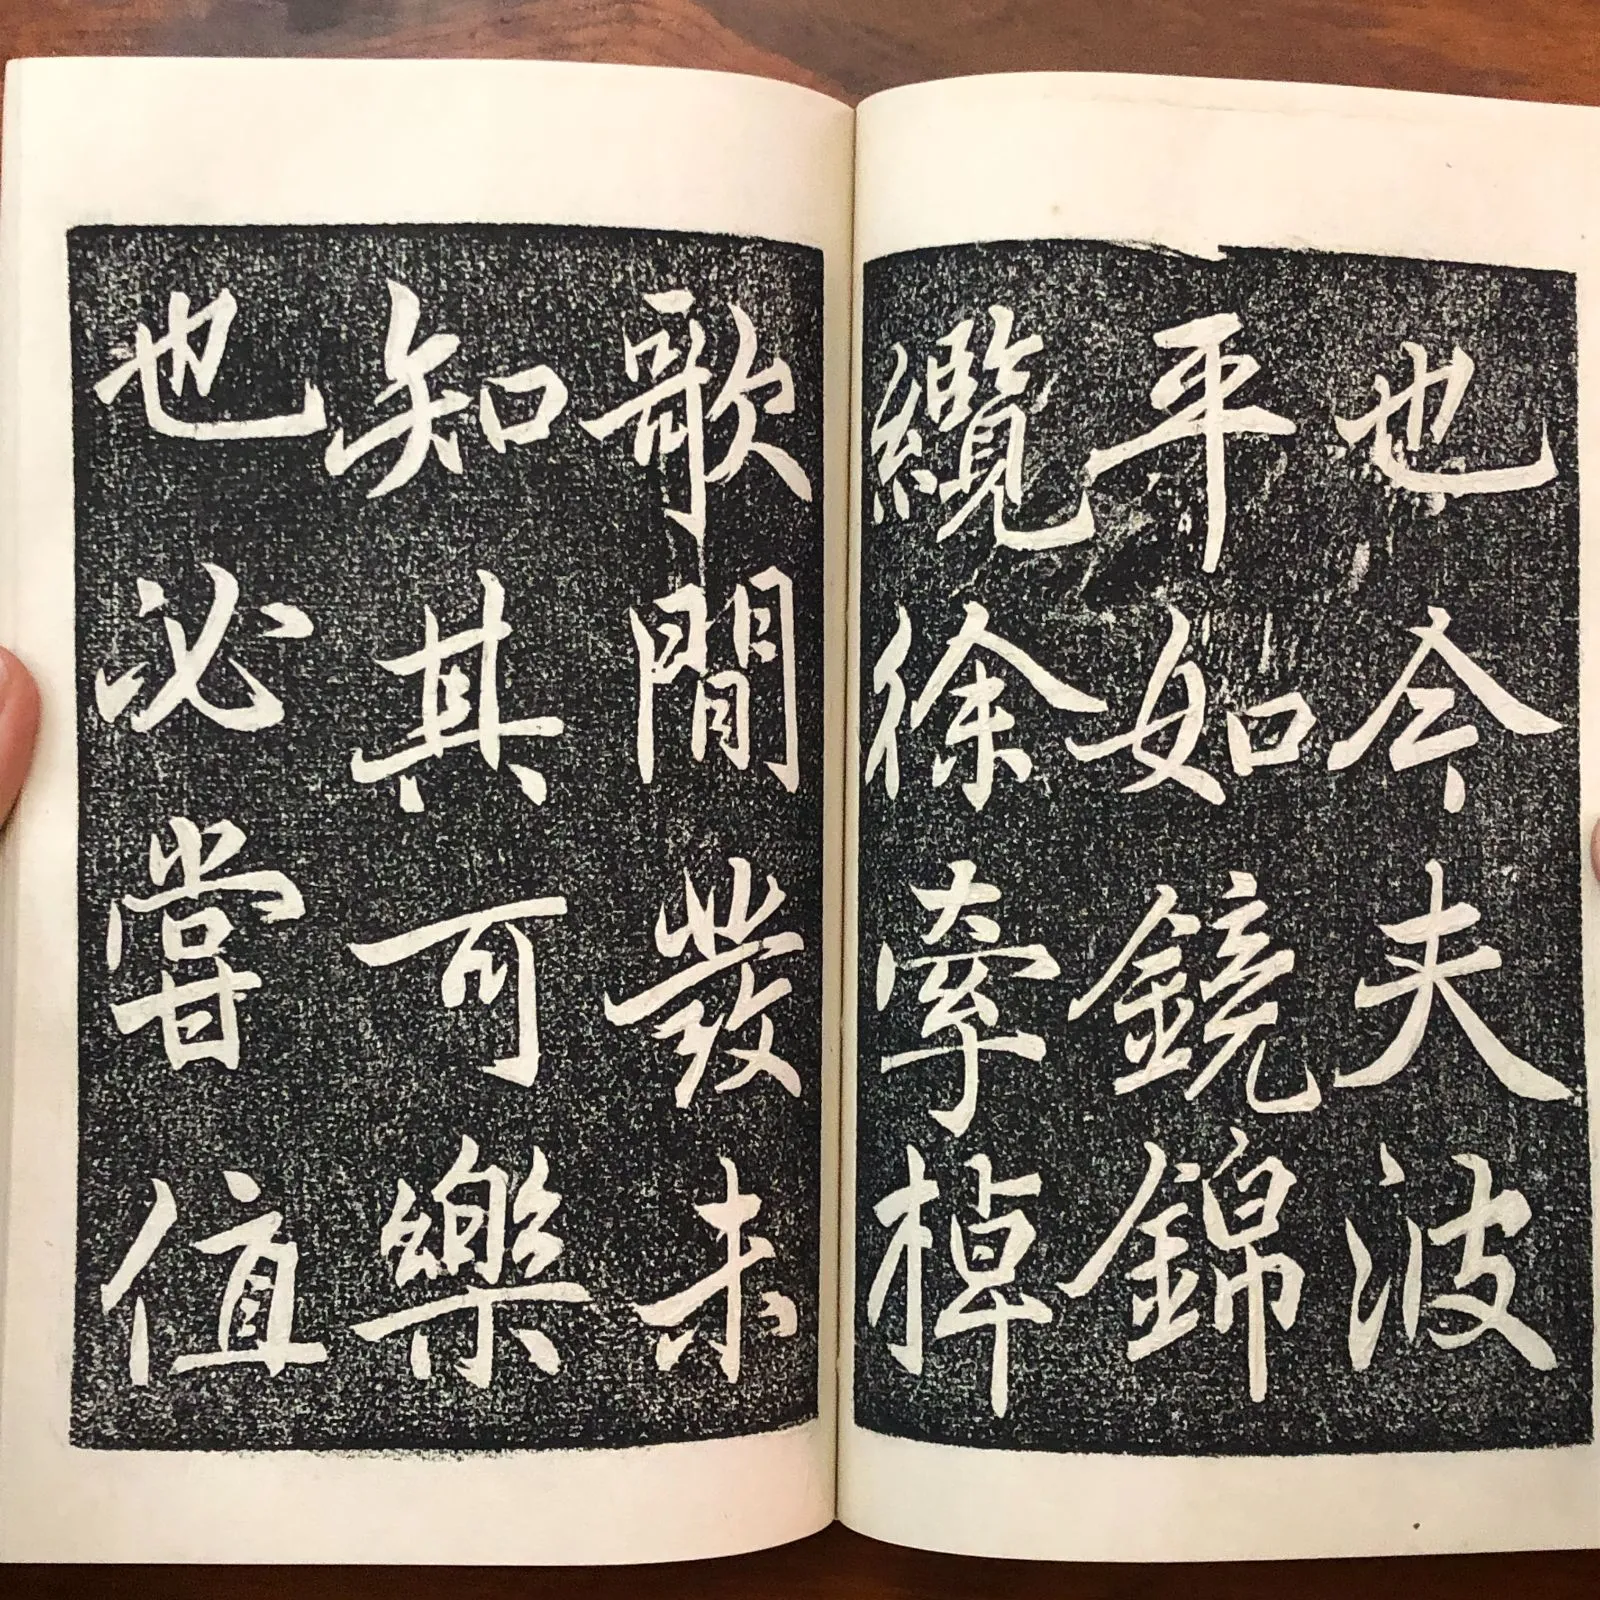 也今夫波
平如鏡錦
纜徐牽棹
歌閒發未
知其可樂
也必嘗值